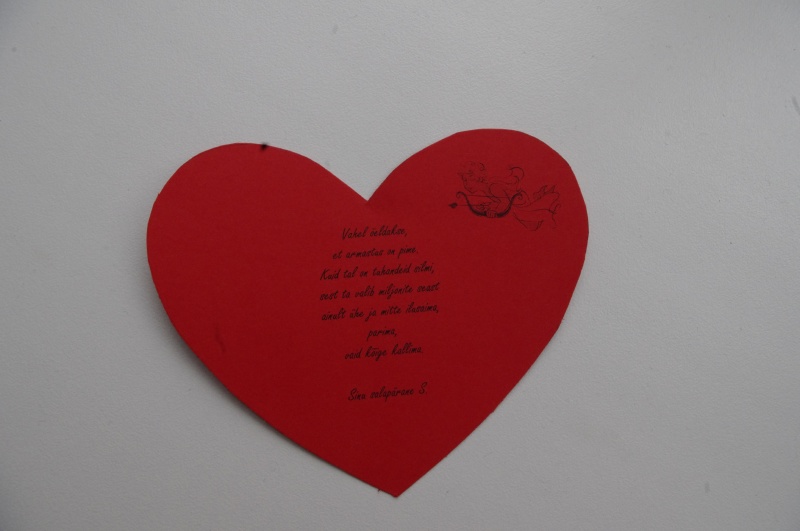 Vahel öeldakse,
et armastus on pime.
Kuid tal on tuhandeid silmi,
sest ta valib miljonite seast
ainult ühe ja mitte ilusaima,
parima,
vaid kõige kallima.
Sinu salapärane S.